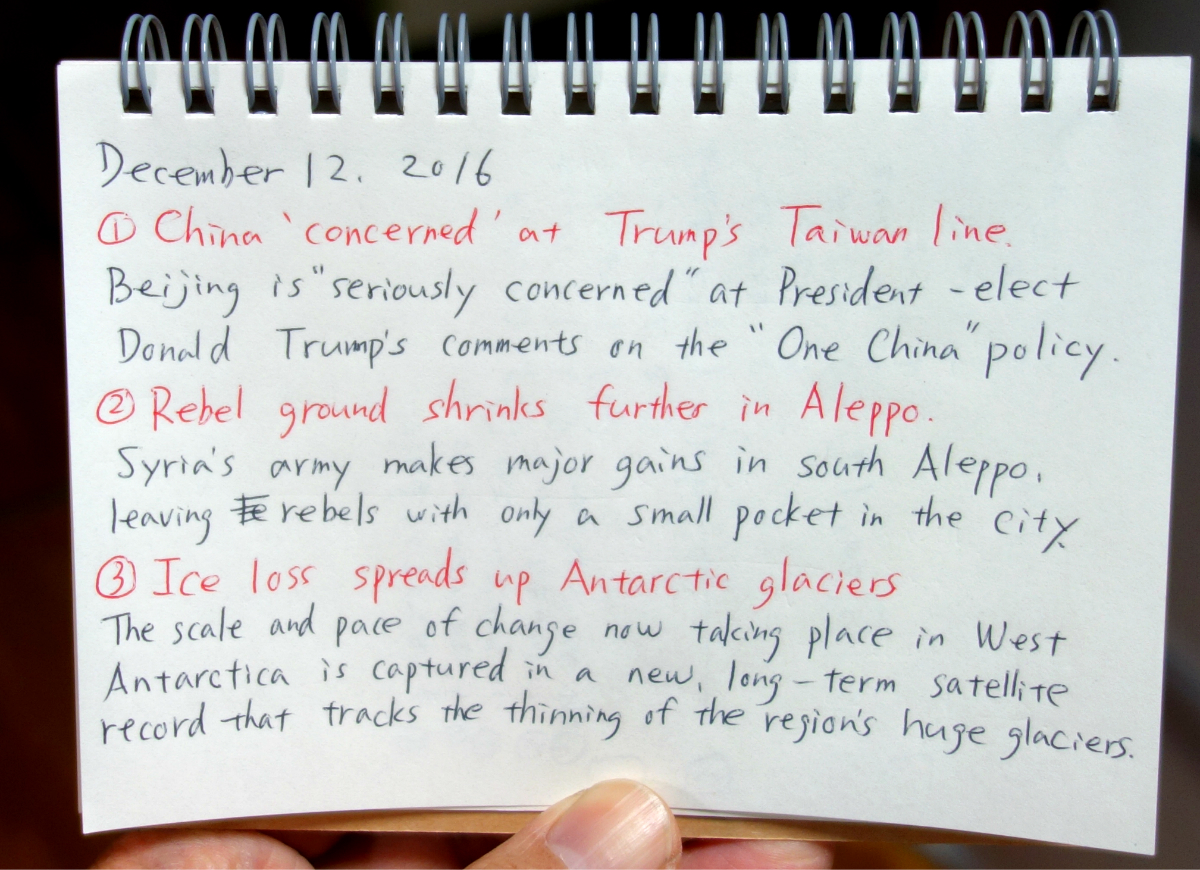 December 12. 2016
① China 'concerned' at Trump's Taiwan line.
Beijing is "seriously concerned" at President-elect
Donald Trump's comments on the "One China" policy.
② Rebel ground shrinks further in Aleppo.
Syria's army makes major gains in south Aleppo,
leaving rebels with only a small pocket in the city.
③ Ice loss spreads up Antarctic glaciers
The scale and pace of change now taking place in West
Antarctica is captured in a new, long-term satellite
record that tracks the thinning of the region's huge glaciers.